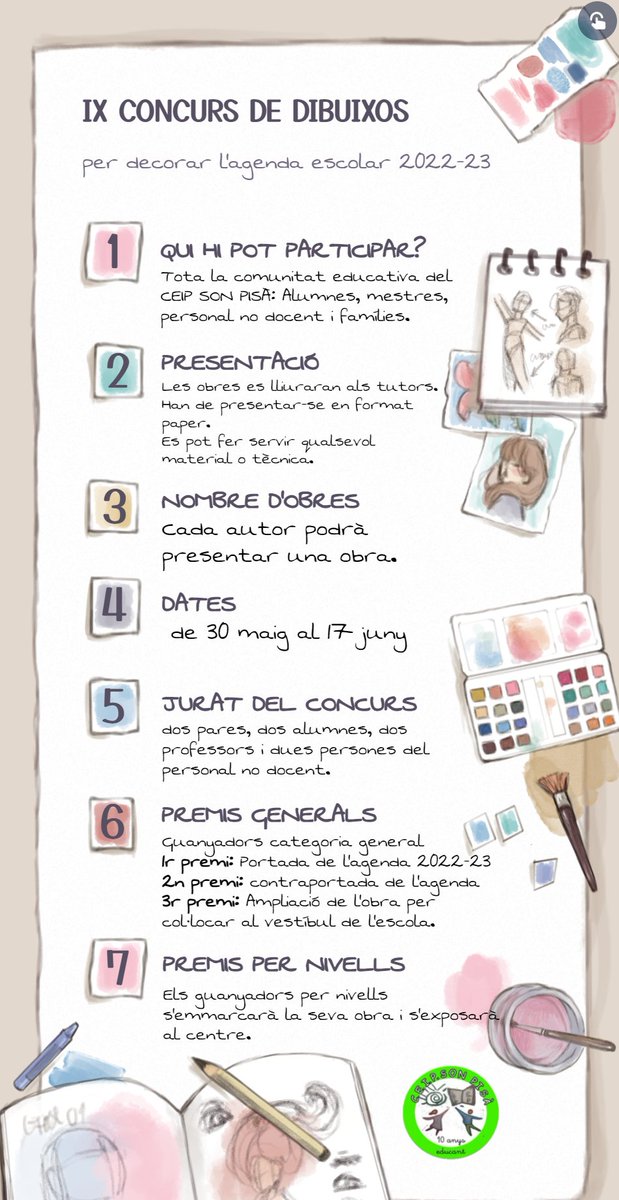 IX CONCURS DE DIBUIXOS
per decorar l'agenda escolar 2022-23
1
QUI HI POT PARTICIPAR?
Tota la comunitat educativa del
CEIP SON PISÀ: Alumnes, mestres,
personal no docent i famílies.
2
PRESENTACIÓ
Les obres es lliuraran als tutors.
Han de presentar-se en format
paper.
Es pot fer servir qualsevol
material o tècnica.
3
NOMBRE D'OBRES
Cada autor podrà
presentar una obra.
4
DATES
de 30 maig al 17 juny
5
JURAT DEL CONCURS
dos pares, dos alumnes, dos
professors i dues persones del
personal no docent.
6
PREMIS GENERALS
Guanyadors categoria general
1r premi: Portada de l'agenda 2022-23
2n premi: contraportada de l'agenda
3r premi: Ampliació de l'obra per
col·locar al vestíbul de l'escola.
7
PREMIS PER NIVELLS
Els guanyadors per nivells
s'emmarcarà la seva obra i s'exposarà
al centre.
C.E.I.P. SON PISÀ
10 anys
educant